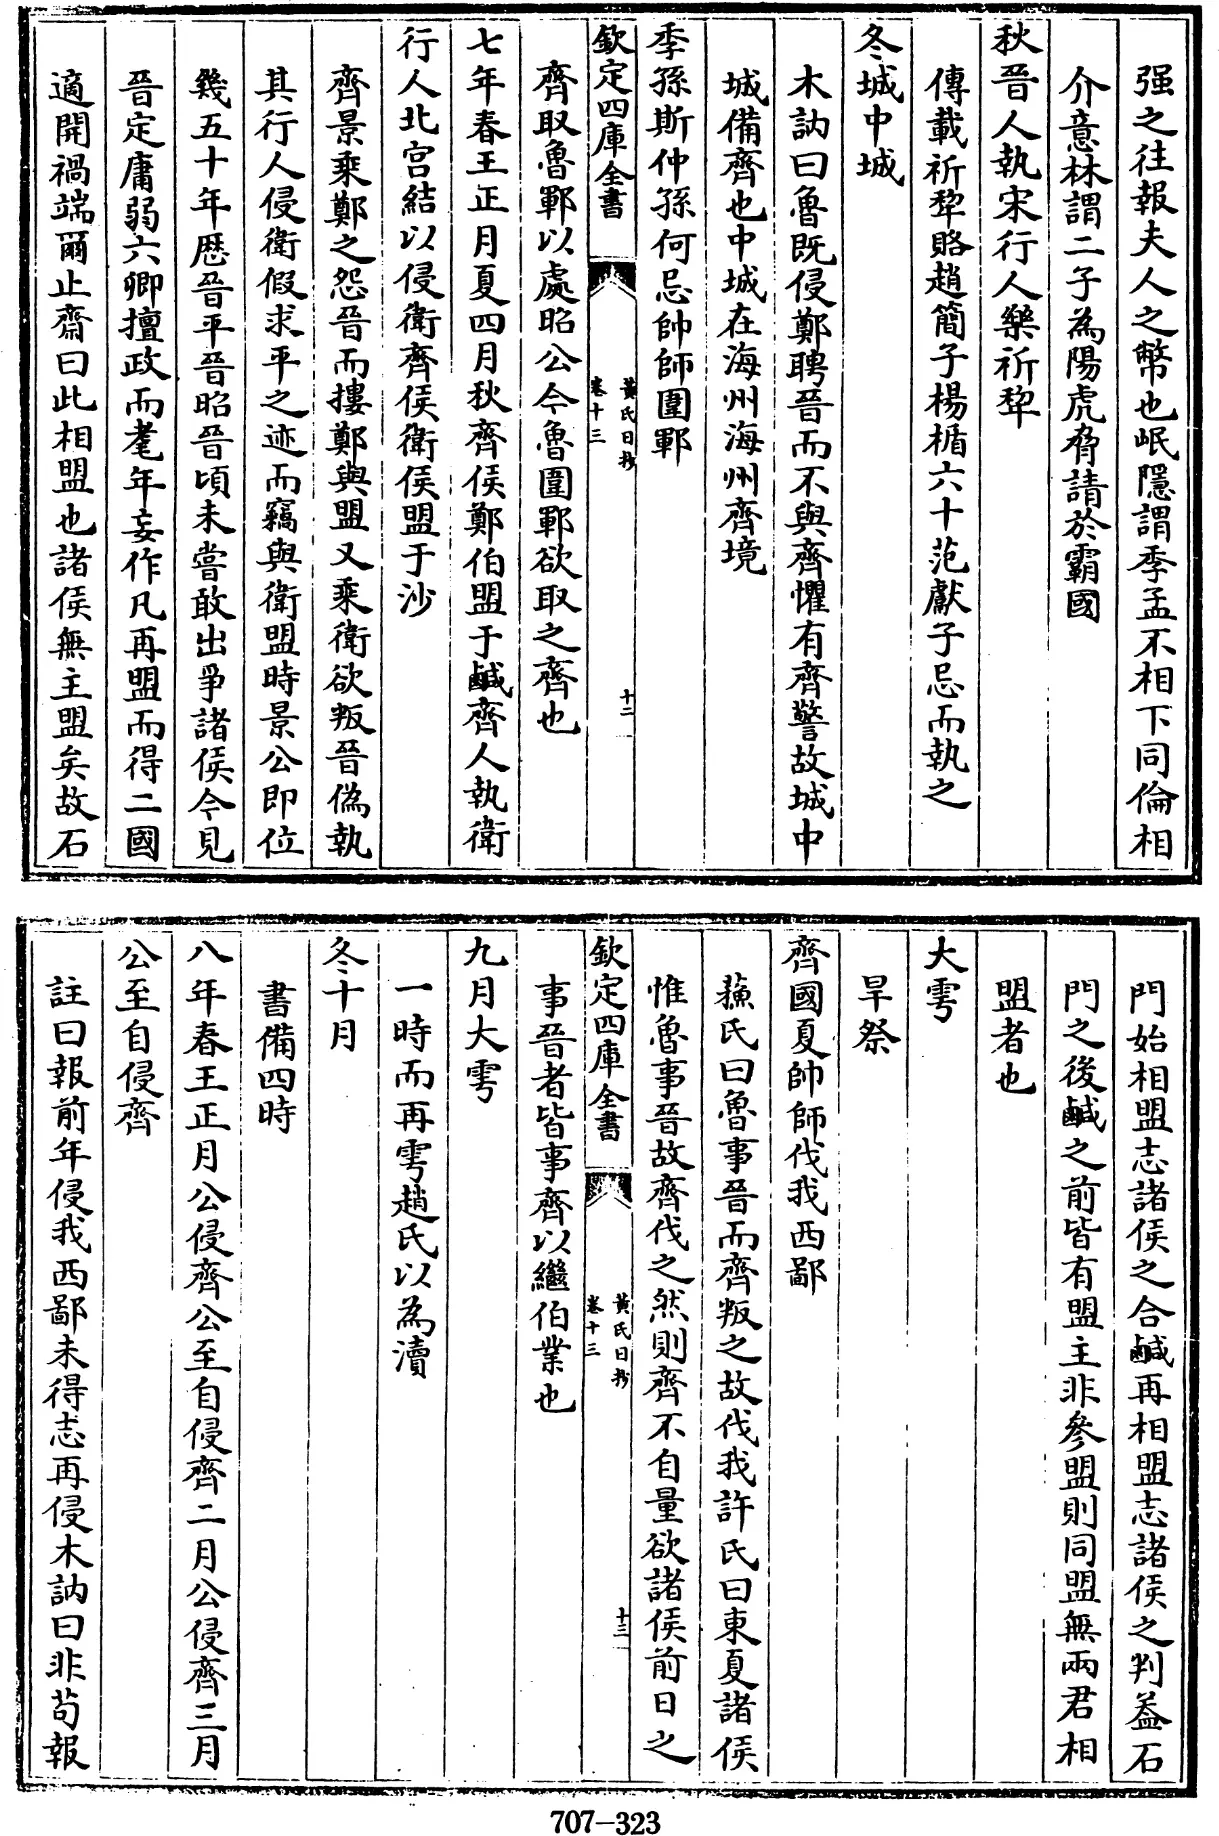 强之往報夫人之幣也岷隱謂季孟不相下同倫相
介意林謂二子為陽虎脅請於霸國
秋晉人執宋行人樂祈犂
傳載祈犂賂趙簡子楊楯六十范獻子忌而執之
冬城中城
木訥曰魯既侵鄭聘晉而不與齊懼有齊警故城中
城備齊也中城在海州海州齊境
季孫斯仲孫何忌帥師圍鄆
欽定四庫全書
黃氏日抄
卷十三
十二
齊取魯鄆以處昭公今魯圍鄆欲取之齊也
七年春王正月夏四月秋齊侯鄭伯盟于鹹齊人執衛
行人北宫結以侵衛齊侯衛侯盟于沙
齊景乘鄭之怨晉而摟鄭與盟又乘衛欲叛晉偽執
其行人侵衛假求平之迹而竊與衛盟時景公即位
幾五十年歷晉平晉昭晉頃未嘗敢出爭諸侯今見
晉定庸弱六卿擅政而耄年妄作凡再盟而得二國
適開禍端爾止齋曰此相盟也諸侯無主盟矣故石
門始相盟志諸侯之合鹹再相盟志諸侯之判葢石
門之後鹹之前皆有盟主非參盟則同盟無兩君相
盟者也
大雩
旱祭
齊國夏帥師伐我西鄙
蘓氏曰魯事晉而齊叛之故伐我許氏曰東夏諸侯
惟魯事晉故齊伐之然則齊不自量欲諸侯前日之
欽定四庫全書
黃氏日抄
卷十三
十三
事晉者皆事齊以繼伯業也
九月大雩
一時而再雩趙氏以為瀆
冬十月
書備四時
八年春王正月公侵齊公至自侵齊二月公侵齊三月
公至自侵齊
註曰報前年侵我西鄙未得志再侵木訥曰非茍報
707-323